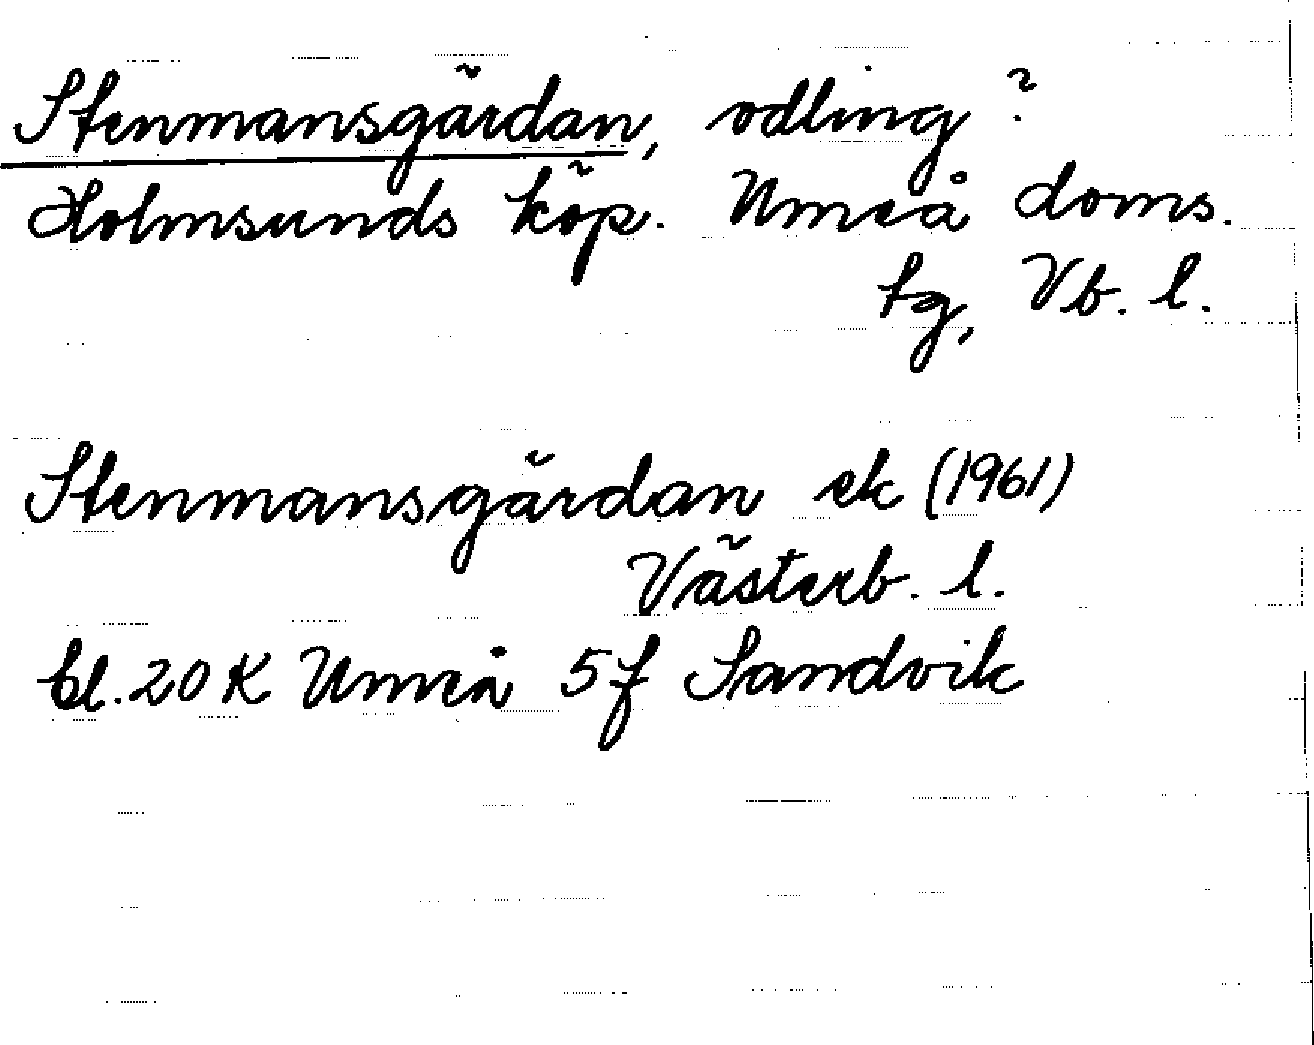 Stenmansgärdan, odling?
Holmsunds köp. Umeå doms.
tg, Vb. l.
Stenmansgärdan ek (1961)
Västerb. l.
bl. 20 K Umeå 5f Sandvik